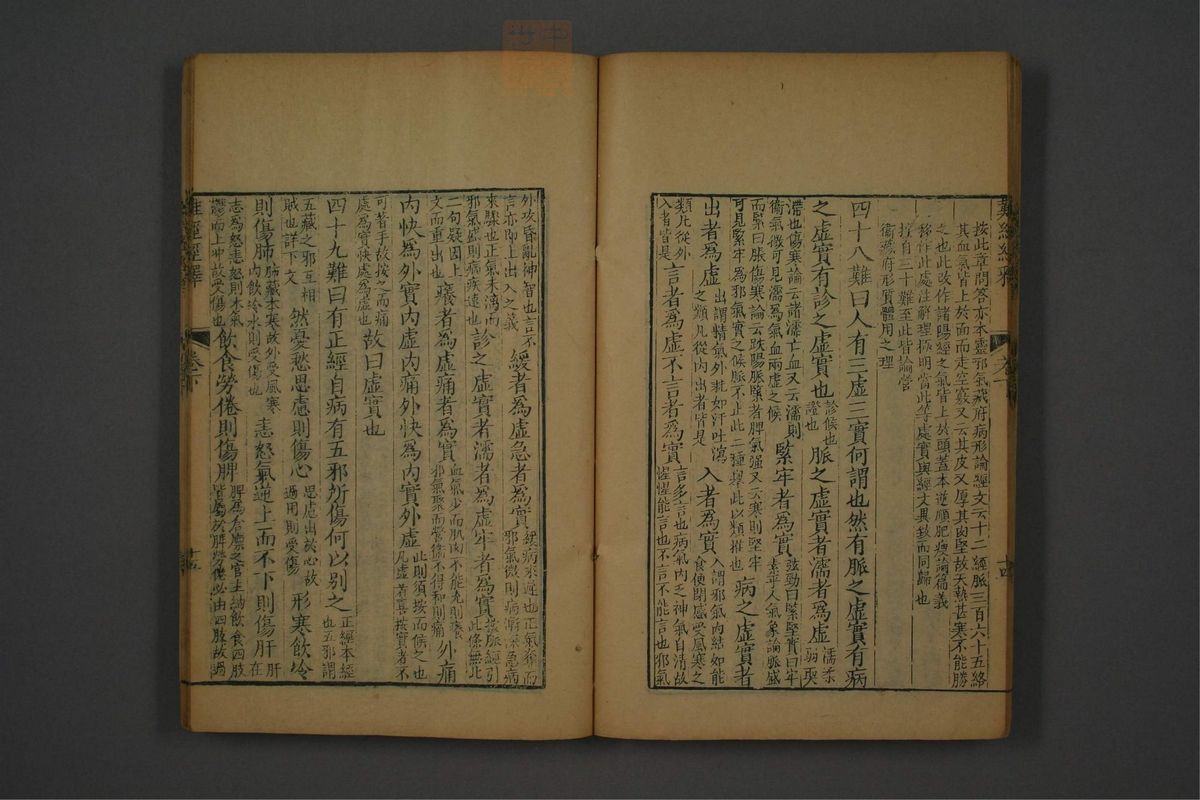 難經經釋 卷下 十四
按此章問答亦本靈邪氣藏府病形論經文云十二經脈三百六十五絡
其血氣皆上於面而走空竅又云其皮又厚其肉堅故天熱甚寒不能勝
之也此改作諸陽經之氣皆上於頭蓋本逆順肥瘦論篇義
移作此處注解理極明當此等處實與經文異致而同歸也
按自三十難至此皆論營
衞藏府形質體用之理
四十八難曰人有三虛三實何謂也然有脈之虛實有病
之虛實有診之虛實也診候也證也脈之虛實者濡者為虛濡柔弱耎
滯也傷寒論云諸濡亡血又云濡則衞氣微可見濡為氣血兩虛之候緊牢者為實弦勁曰緊堅實曰牢素平人氣象論脈盛
而緊曰脹傷寒論云趺陽脈緊者脾氣强又云寒則堅牢可見緊牢為邪氣實之候脈不止此二種舉此以類推也病之虛實者
出者為虛出謂精氣外耗如汗吐瀉之類凡從內出者皆是入者為實入謂邪氣內結如能食便閉感受風寒之
類凡從外入者皆是言者為虛不言者為實言多言也病氣內乏神氣自清故惺惺能言也不言不能言也邪氣
外攻昏亂神智也言不言亦卽上出入之義緩者為虛急者為實緩病來遲也正氣奪而邪氣微則病漸深急病
來驟也正氣未漓而邪氣盛則病疾速也診之虛實者濡者為虛牢者為實按脈經引此條無此
二句疑因上文而重出也癢者為虛痛者為實血氣少而肌肉不能充則癢邪氣聚而營衞不得和則痛外痛
內快為外實內虛內痛外快為內實外虛此則須按而候之也凡虛者喜按實者不
可著手故按之而痛處為實快處為虛也故曰虛實也
四十九難曰有正經自病有五邪所傷何以別之正經本經也五邪謂
五藏之邪互相賊也詳下文然憂愁思慮則傷心思慮出於心故過用則受傷形寒飲冷
則傷肺肺藏本寒故外受風寒內飲冷水則受傷也恚怒氣逆上而不下則傷肝肝在
志為怒恚怒則木氣鬱而上冲故受傷也飲食勞倦則傷脾脾為倉廩之官主納飲食四肢皆屬於脾勞倦必由四肢故過
難經經釋 卷下 十五